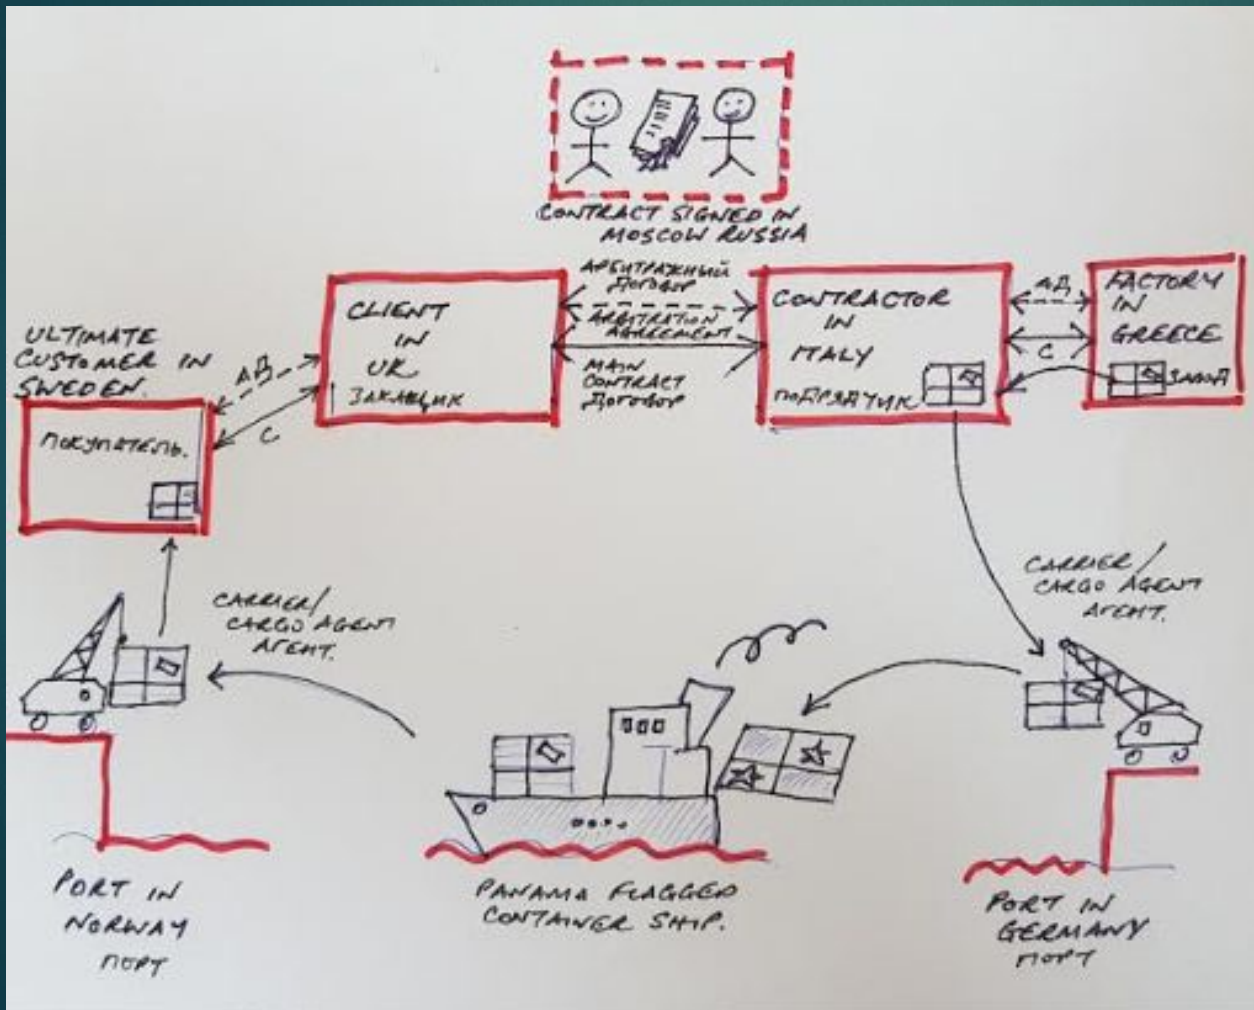 CONTRACT SIGNED IN
MOSCOW RUSSIA
ULTIMATE
CUSTOMER IN
SWEDEN.
ПОКУПАТЕЛЬ.
АД
С
CLIENT
IN
UK
ЗАКАЩИК
АРБИТРАЖНЫЙ
ДОГОВОР
ARBITRATION
AGREEMENT
MAIN
CONTRACT
ДОГОВОР
CONTRACTOR
IN
ITALY
ПОДРЯДЧИК
АД
С
FACTORY
IN
GREECE
ЗАВОД
CARRIER/
CARGO AGENT
АГЕНТ.
CARRIER/
CARGO AGENT
АГЕНТ.
PORT IN
NORWAY
ПОРТ
PANAMA FLAGGED
CONTAINER SHIP.
PORT IN
GERMANY
ПОРТ